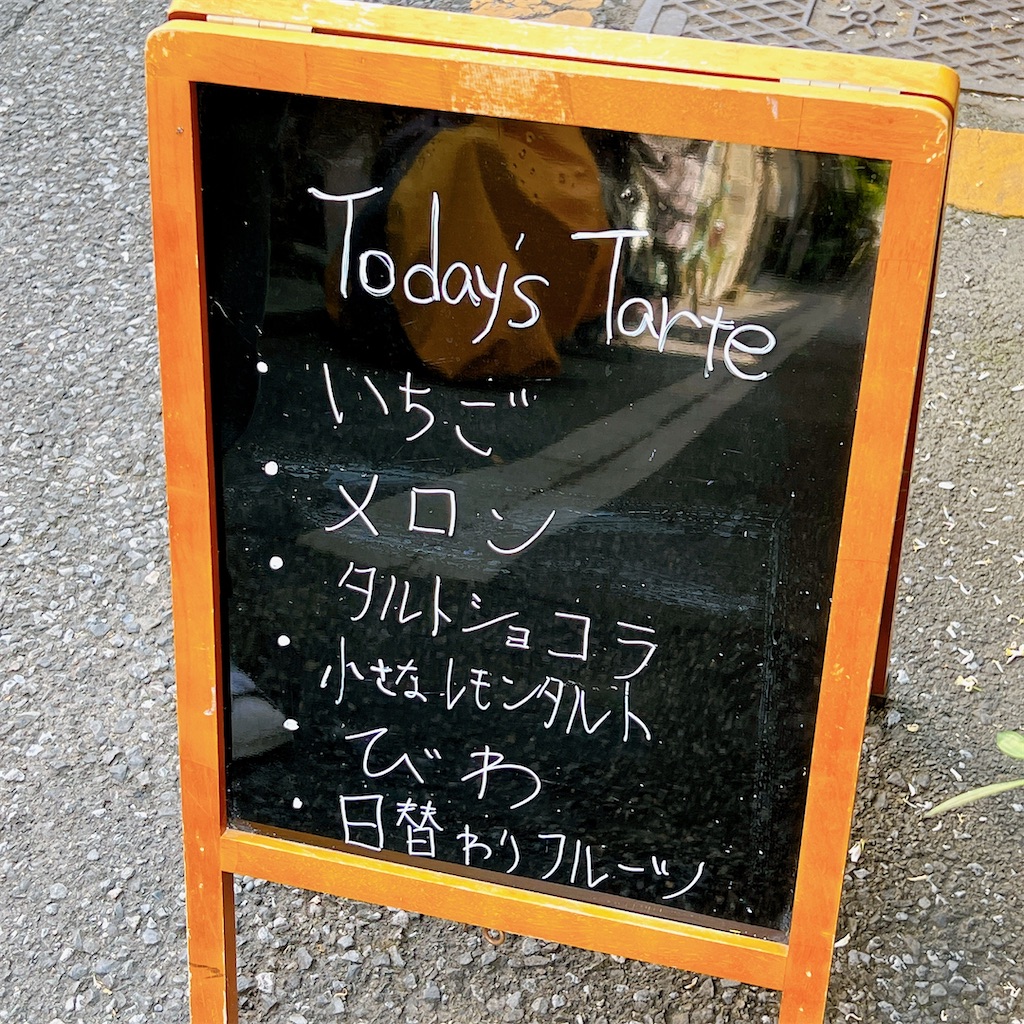 Today's Tarte
・いちご
・メロン
・タルトショコラ
・小さなレモンタルト
・びわ
・日替わりフルーツ